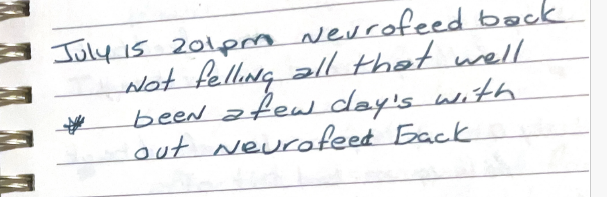 July 15 201pm Neurofeed back
Not felling all that well
* been a few day's with
out Neurofeet back